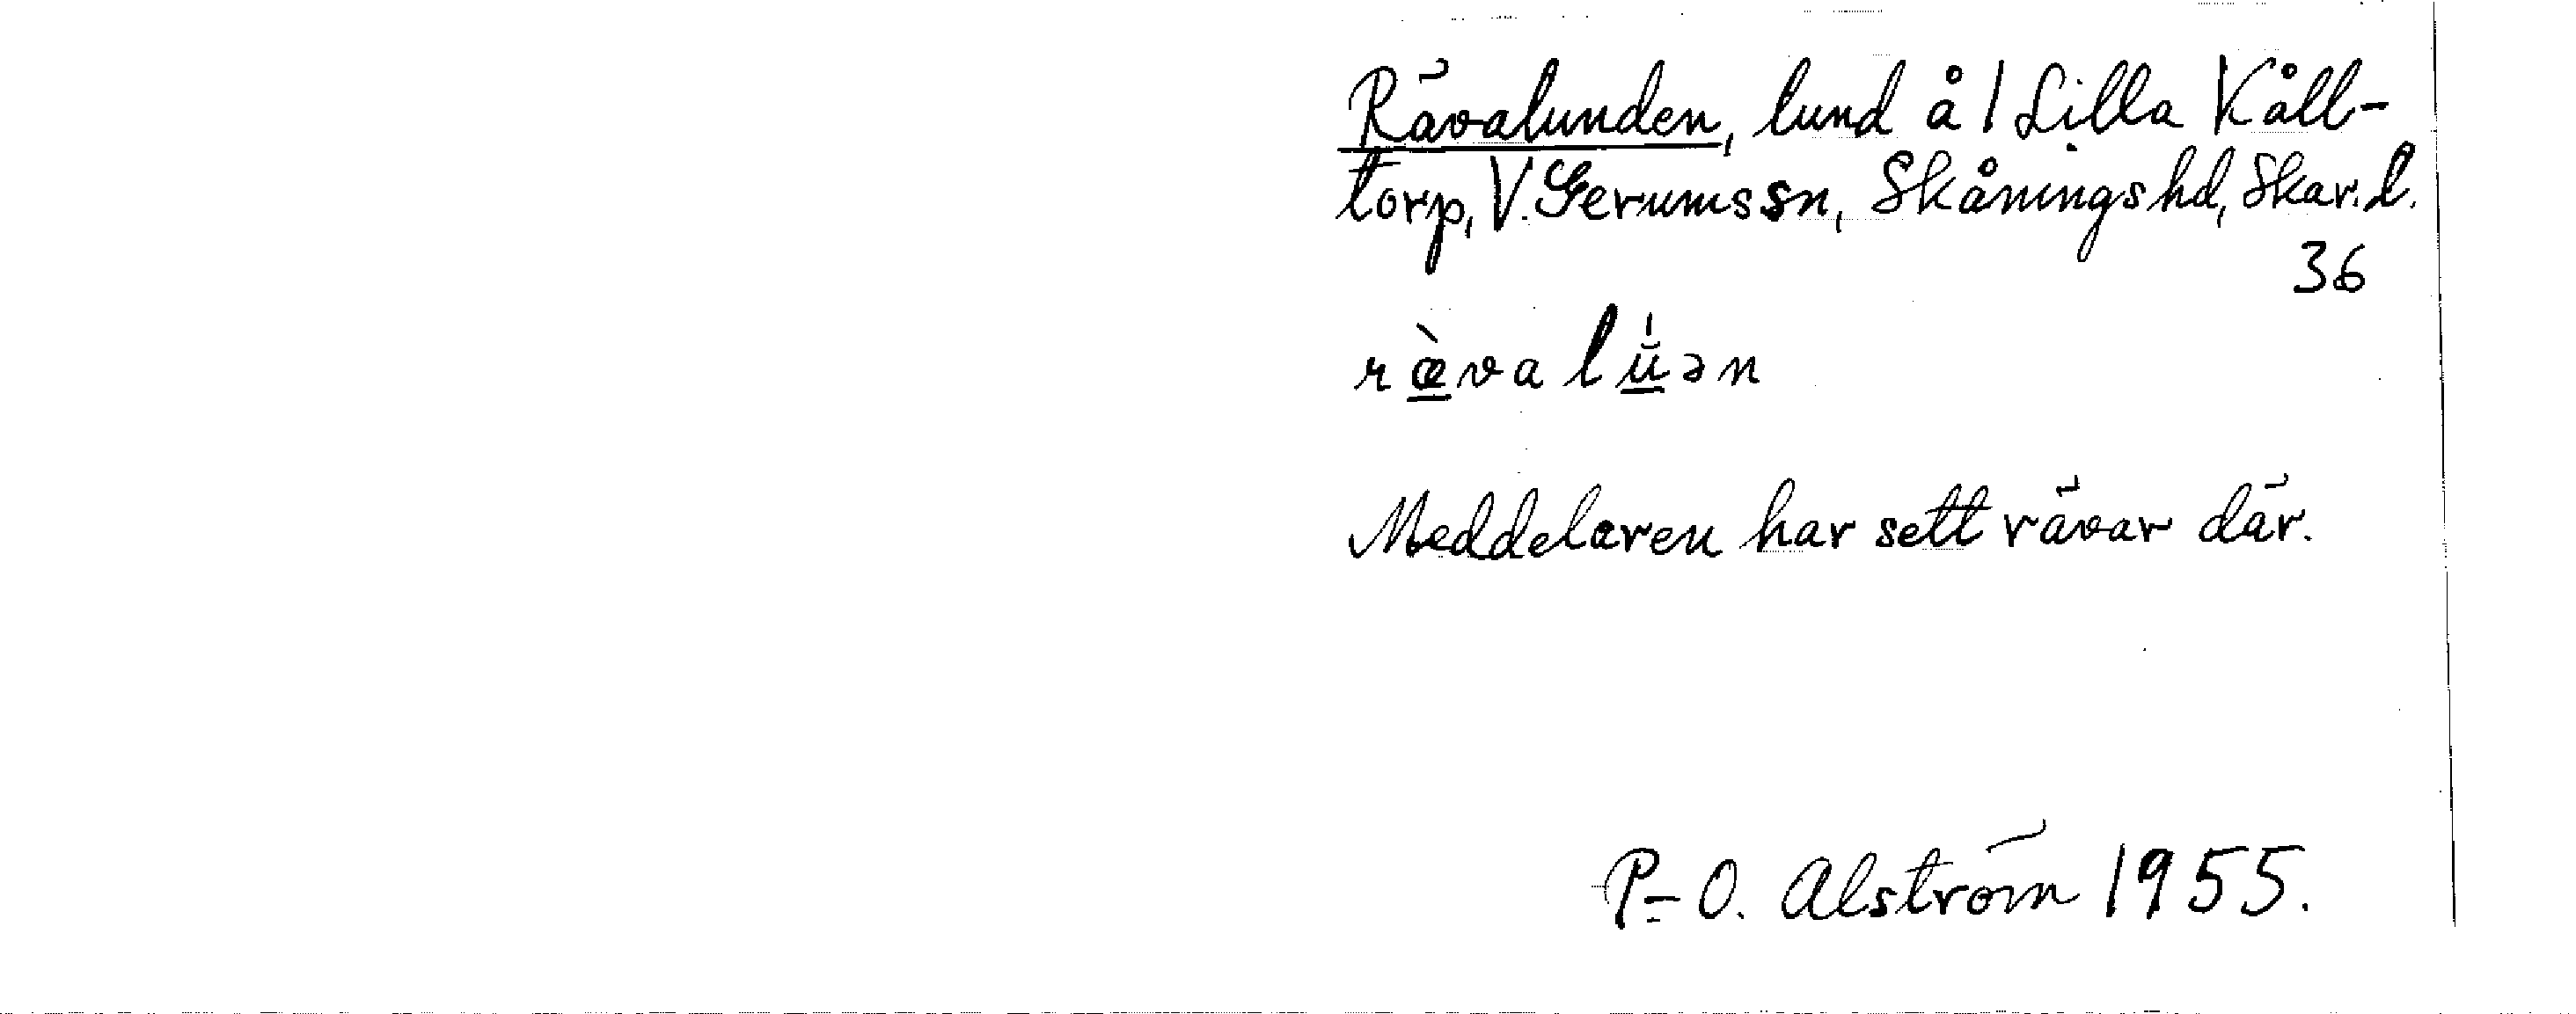 Rävalunden, lund å 1 Lilla Kåll-
torp, V. Gerums sn, Skånings hd, Skar. l.
36
ræ̀valŭ́ən
Meddelaren har sett rävar där.
P-O. Alström 1955.